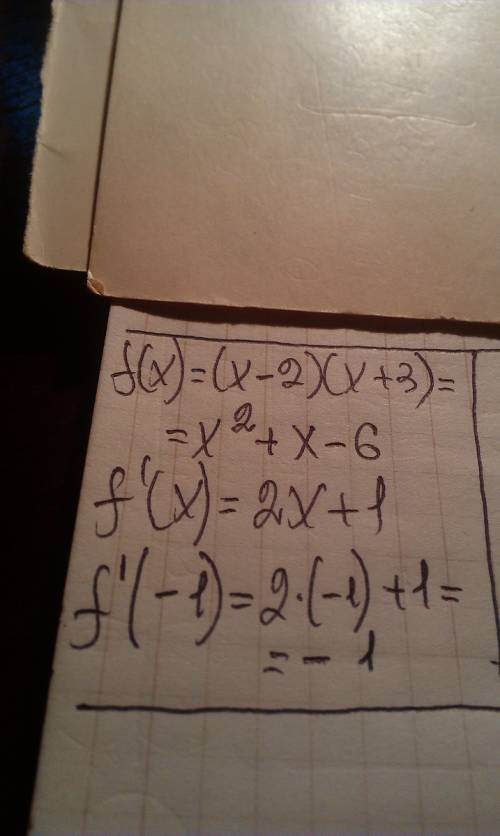 f(x)=(x-2)(x+3)=
=x²+x-6
f'(x)=2x+1
f'(-1)=2·(-1)+1=
=-1